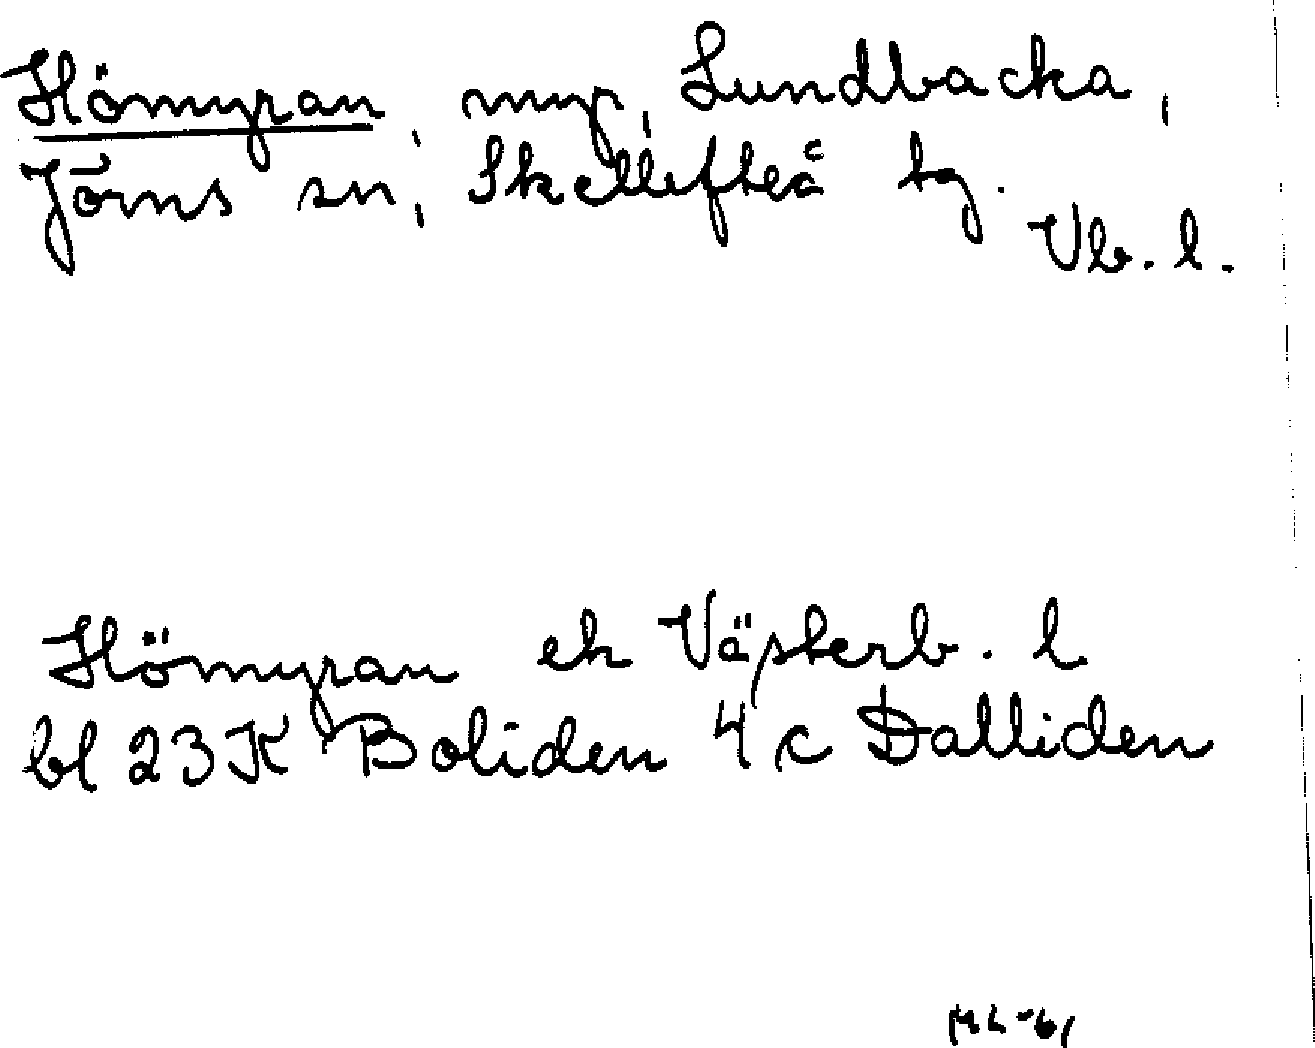 Hömyran, myr, Lundbacka,
Jörns sn, Skellefteå tg.
Vb. l.
Hömyran ek Västerb. l
bl 23K Boliden 4c Dalliden